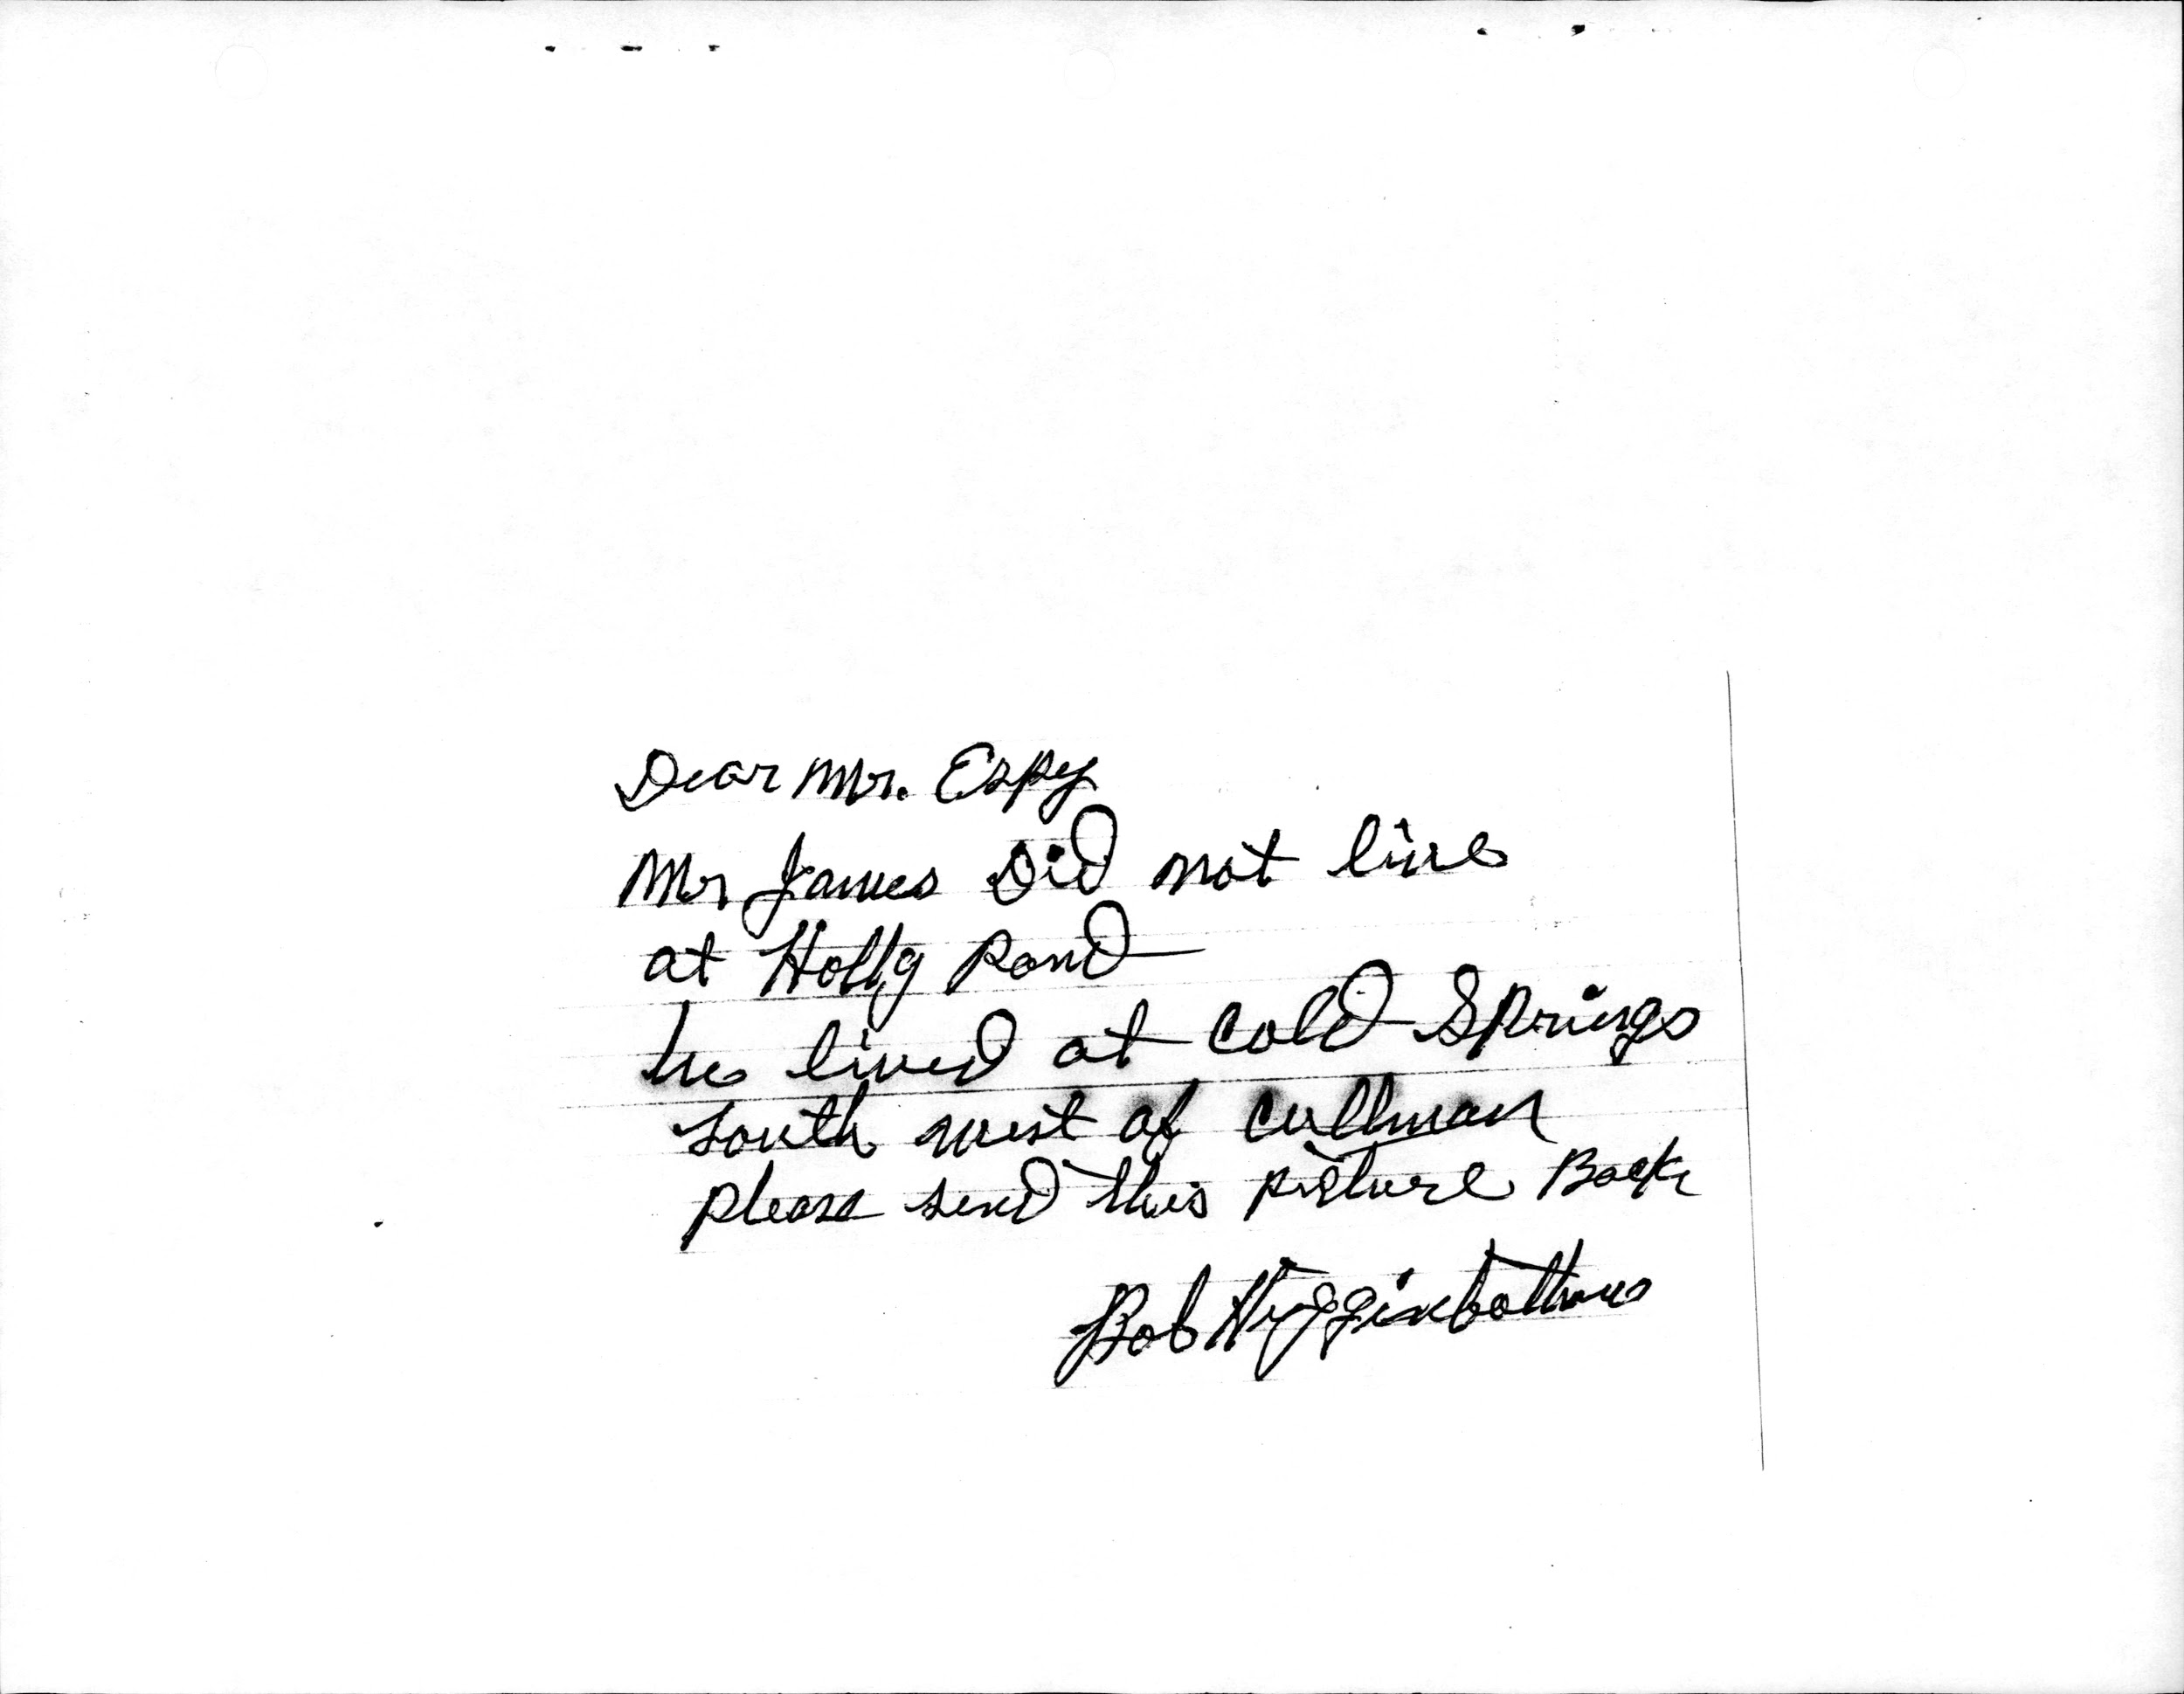 Dear Mr. Espy
Mr James Did not live
at Holly Pond
he lived at Cold Springs
South west of Cullman
Please send this picture Back
Bob Higginbotham